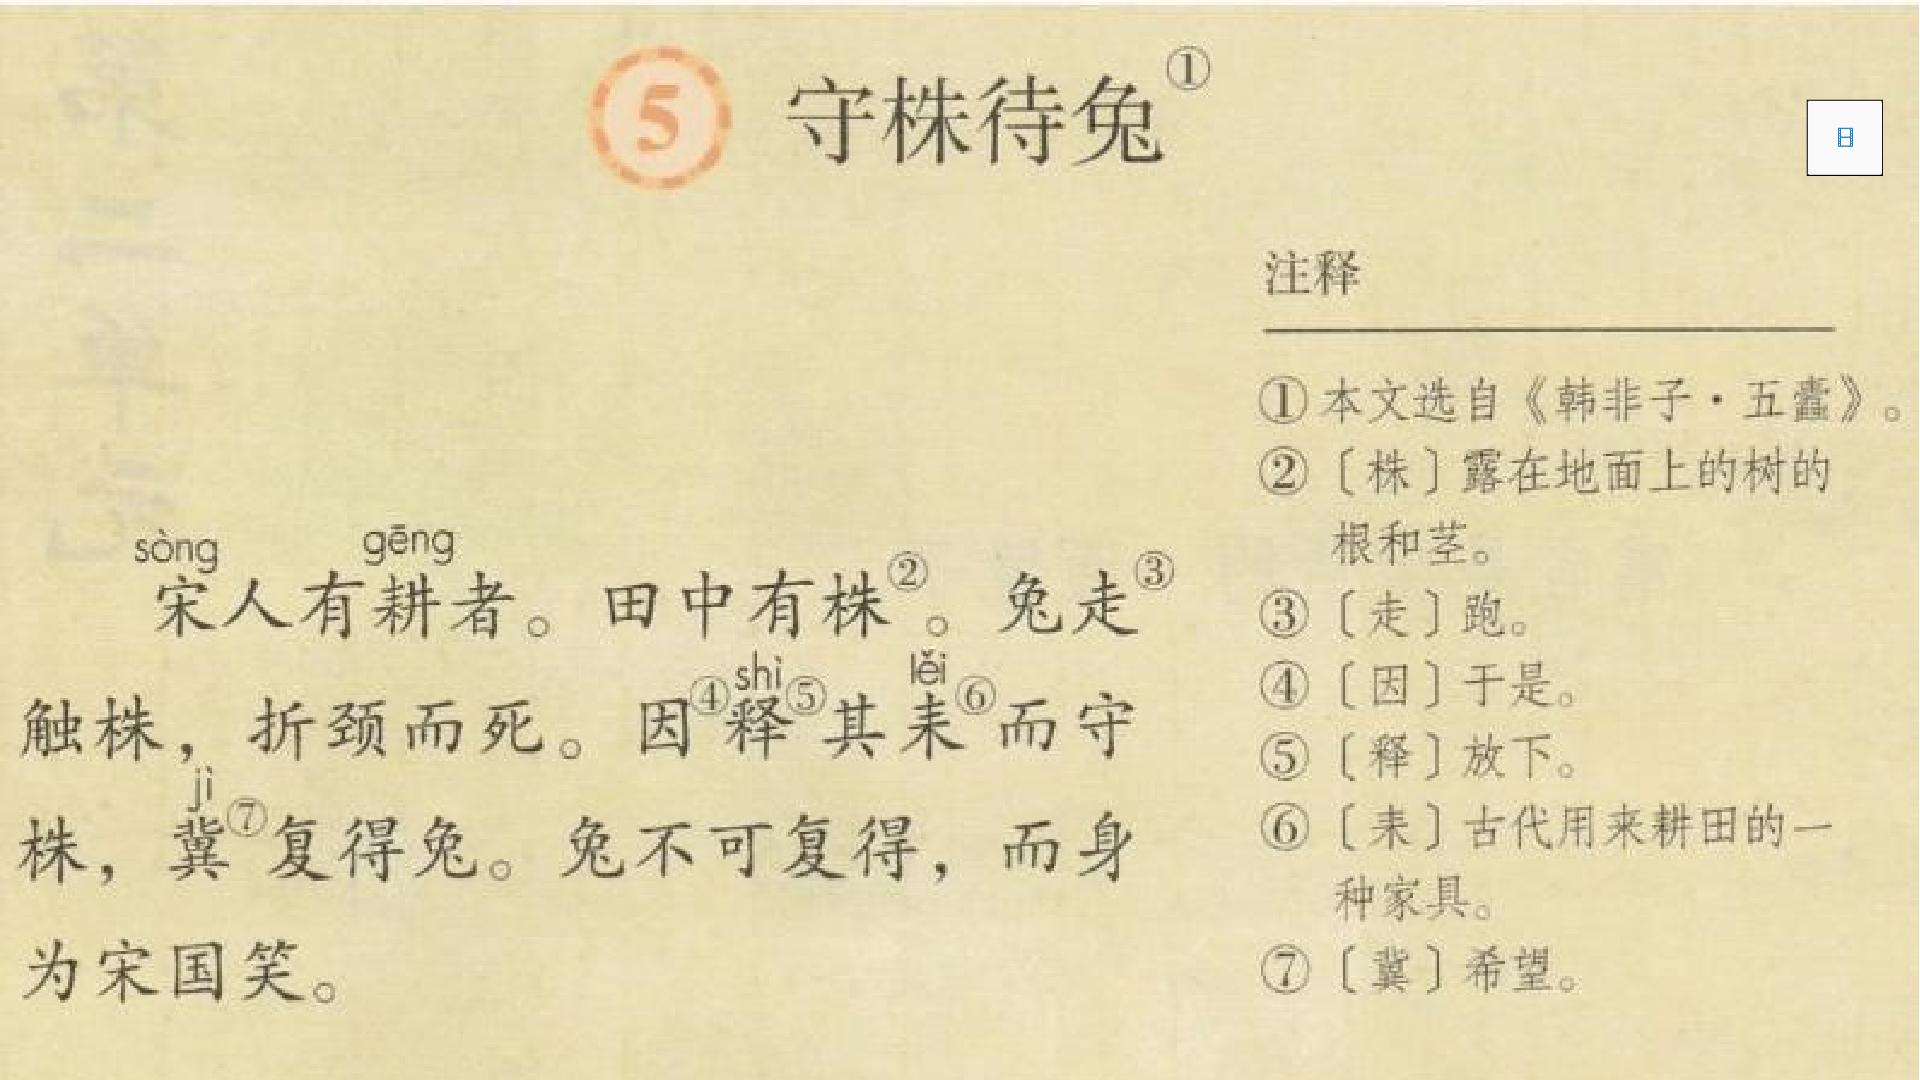 5 守株待兔①
注释
①本文选自《韩非子·五蠹》。
②〔株〕露在地面上的树的
根和茎。
③〔走〕跑。
④〔因〕于是。
⑤〔释〕放下。
⑥〔耒〕古代用来耕田的一
种家具。
⑦〔冀〕希望。
sòng gēng
宋人有耕者。田中有株②。兔走③
shì lěi
触株，折颈而死。因④释⑤其耒⑥而守
jì
株，冀⑦复得兔。兔不可复得，而身
为宋国笑。